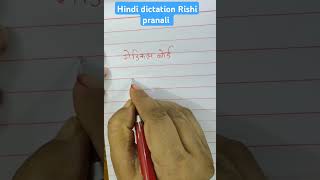 Hindi dictation Rishi
pranali
मेडिकल बोर्ड